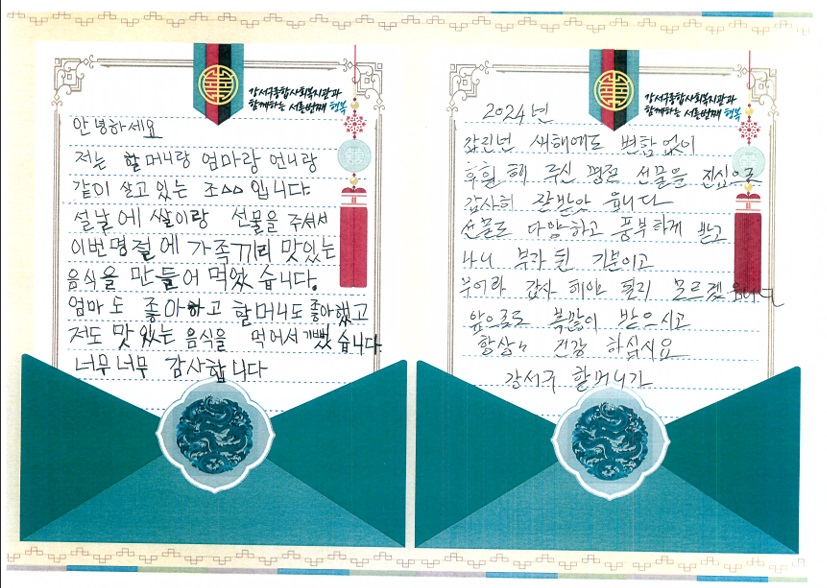 강서구종합사회복지관과
함께하는 서른번째 행복
안녕하세요
저는 할머니랑 엄마랑 언니랑
같이 살고 있는 조△△ 입니다
설날에 쌀이랑 선물을 주셔서
이번명절에 가족끼리 맛있는
음식을 만들어 먹었습니다.
엄마도 좋아하고 할머니도 좋아했고
저도 맛있는 음식을 먹어서 기뻤습니다.
너무너무 감사합니다
강서구종합사회복지관과
함께하는 서른번째 행복
2024년
갑진년 새해에도 변함없이
후원 해 주신 명절 선물을 진심으로
감사히 잘받았읍니다
선물도 다양하고 풍부하게 받고
나니 부자 된 기분이고
무어라 감사 해야 될지 모르겠읍니다
앞으로도 복많이 받으시고
항상 건강 하십시요
강서구 할머니가